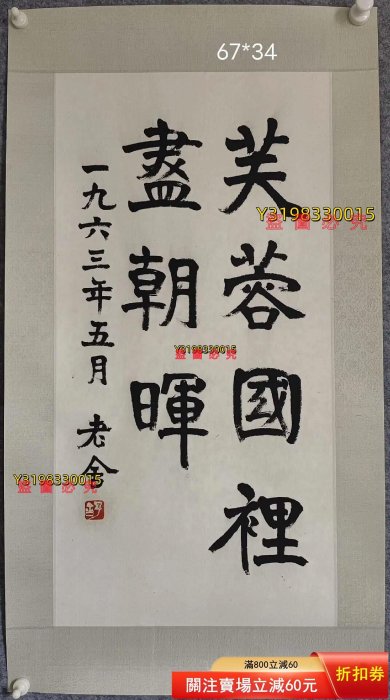 67*34
芙蓉國裡
盡朝暉
一九六三年五月 老舍
Y3198330015
盜圖必究
Y3198330015
盜圖必究
Y3198330015
盜圖必究
滿800立減60
關注賣場立減60元
折扣券